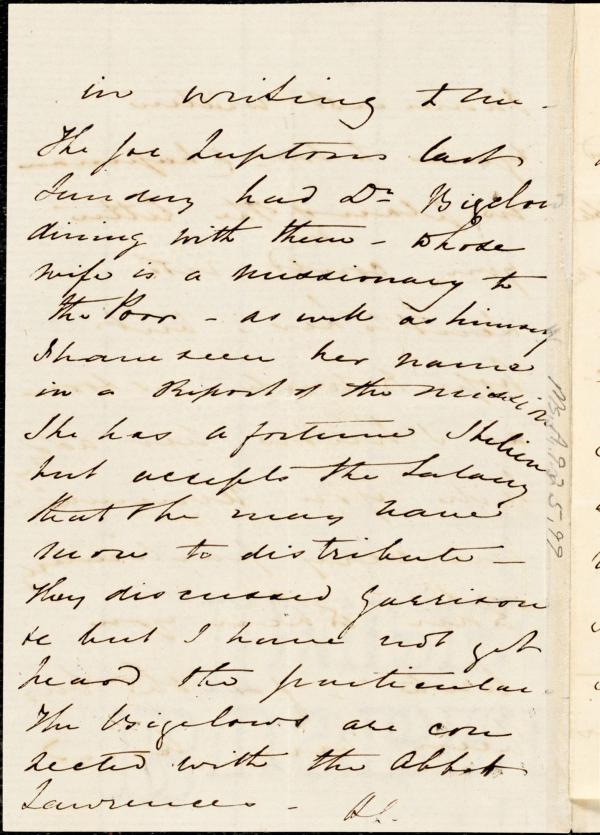 in writing to me -
The Joe Luptons last
Sunday had Dr Bigelow
dining with them - whose
wife is a missionary to
the Poor - as well as himself
I have seen her name
in a Report of the mission
She has a fortune I believe
but accepts the Salary
that she may have
more to distribute -
They discussed Garrison
&c but I have not yet
heard the particular
The Bigelows are con
nected with the Abbot
Lawrences -
Ms.A.9.2.5.99